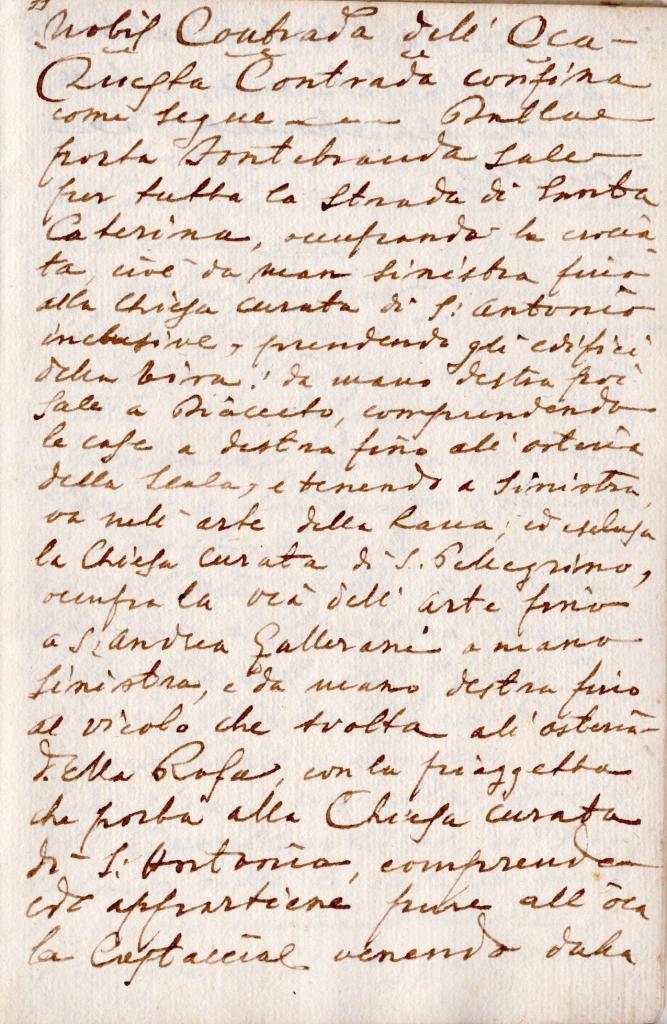 Nobil Contrada dell' Oca –
Questa Contrada confina
come segue –– Dalla
porta Fontebranda sale
per tutta la Strada di Santa
Caterina, occupando la crocia
ta, cioè da man sinistra fino
alla Chiesa curata di S: Antonio
inclusive, prendendo gli edifici
della
da mano destra poi
sale a Diacceto, comprendendo
le case a destra fino all' osteria
della Scala, e tenendo a sinistra,
va nell' arte della Lana, ed esclusa
la Chiesa curata di S. Pellegrino,
occupa la via dell' arte fino
a S. Andrea Gallerani a mano
sinistra, e da mano destra fino
al vicolo che svolta all' osteria
della Rosa, con la piaggetta
che porta alla Chiesa curata
di S: Antonio, comprende
ed appartiene pure all' oca
la Costaccia venendo dalla